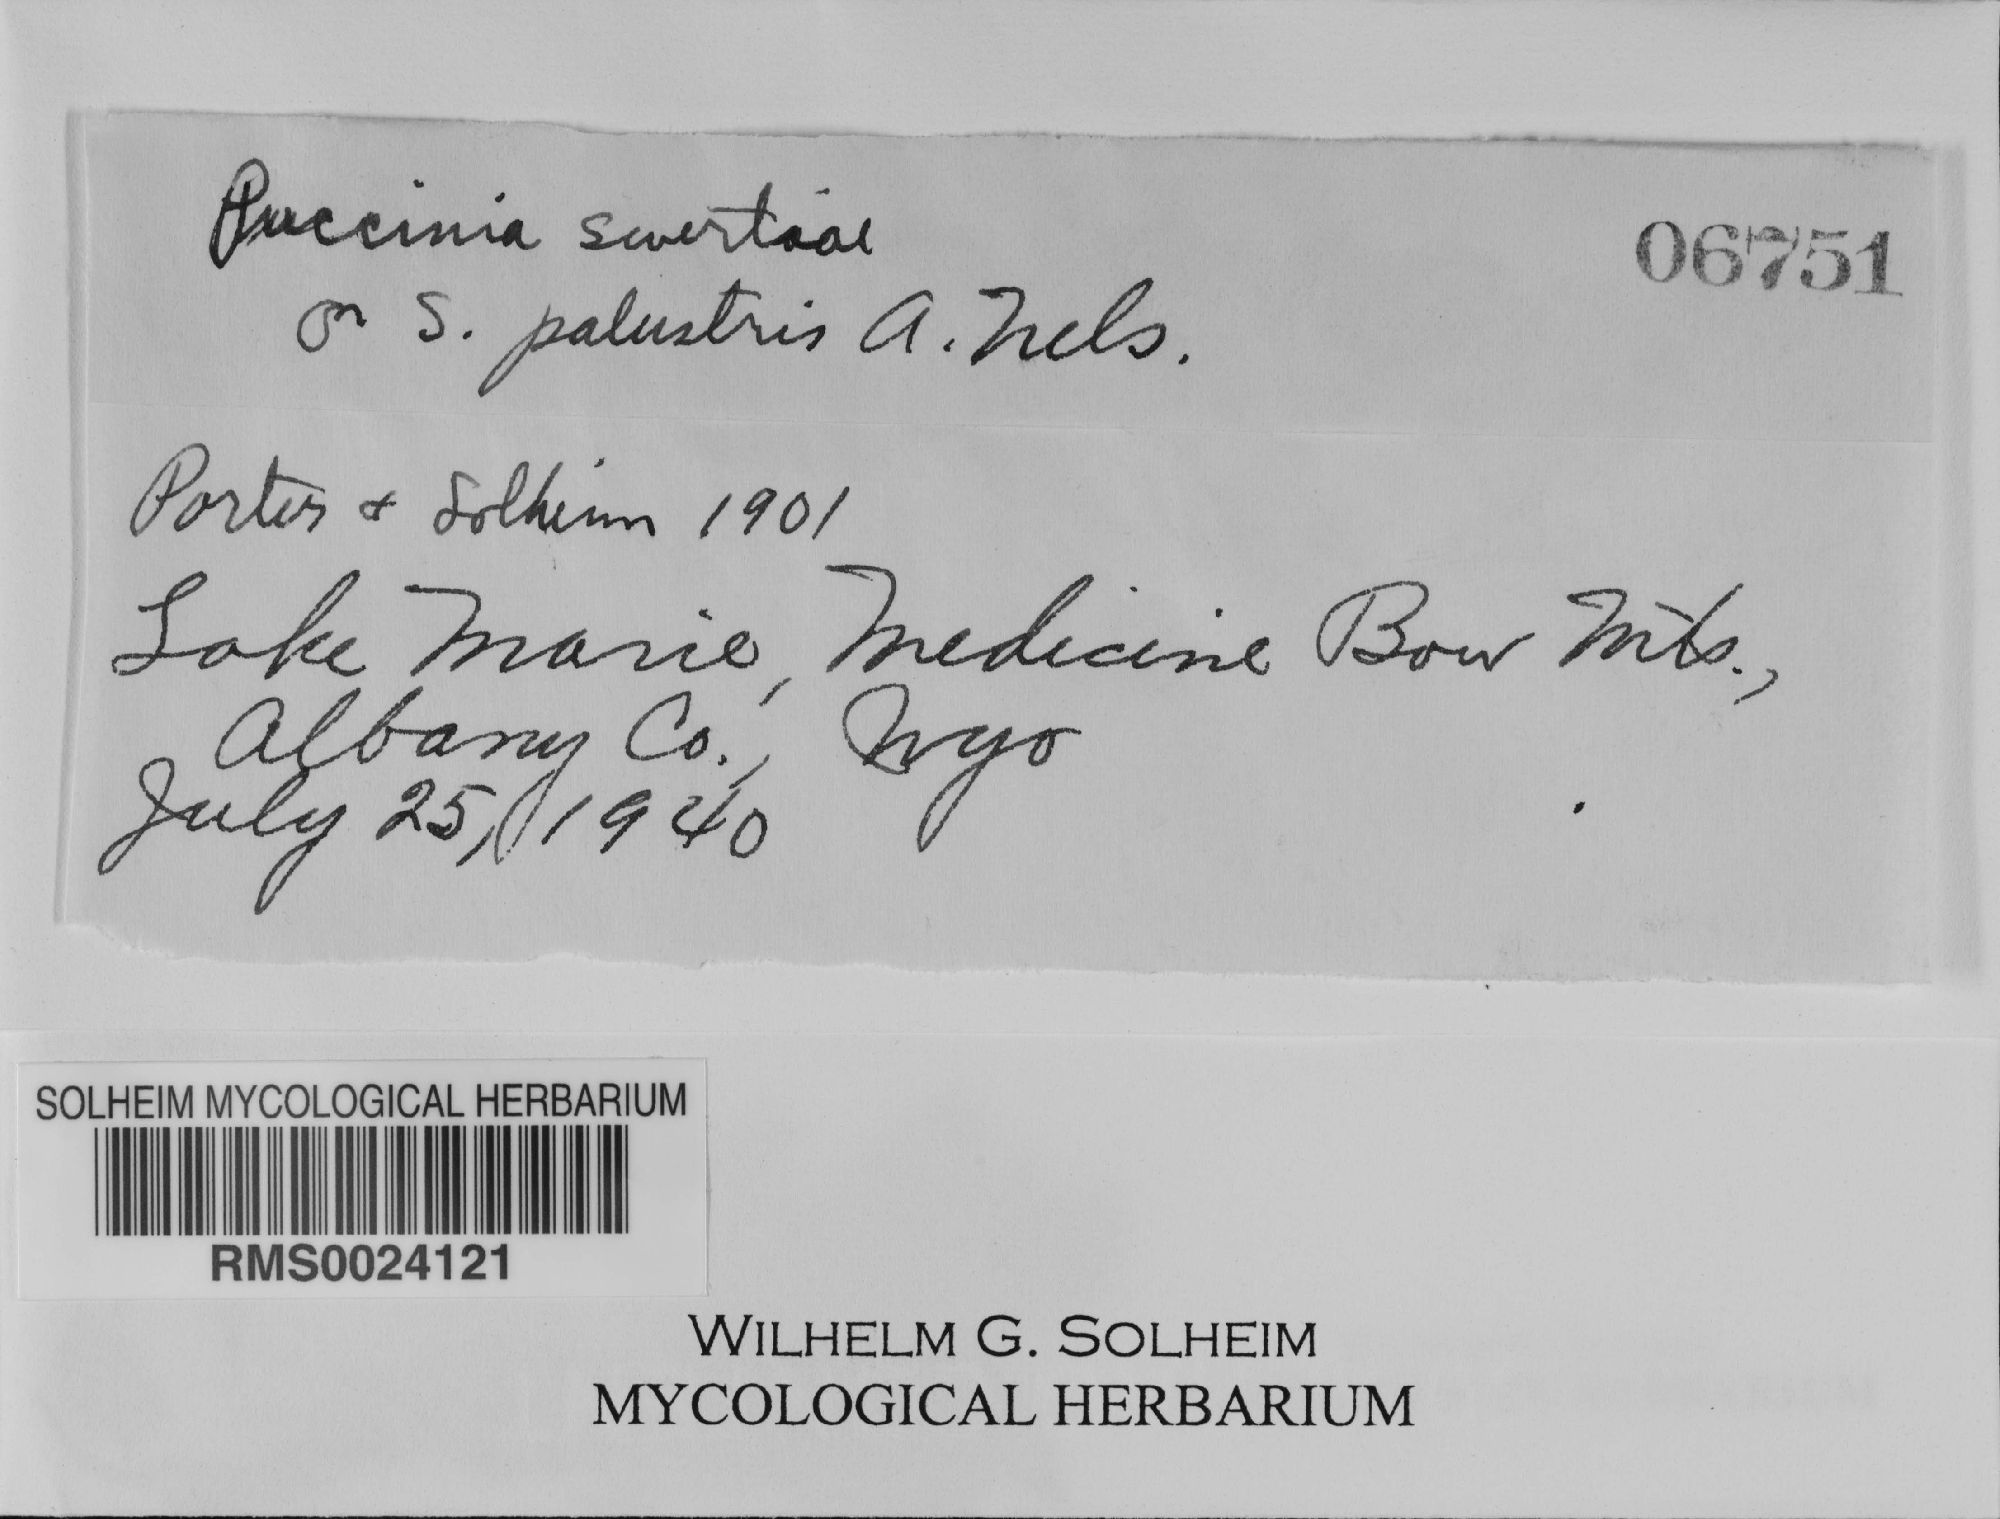 Puccinia swertiae
06751
on S. palustris A. Nels.
Porter & Solheim 1901
Lake Marie, Medicine Bow Mts.,
Albany Co., Wyo
July 25, 1940
SOLHEIM MYCOLOGICAL HERBARIUM
RMS0024121
WILHELM G. SOLHEIM
MYCOLOGICAL HERBARIUM